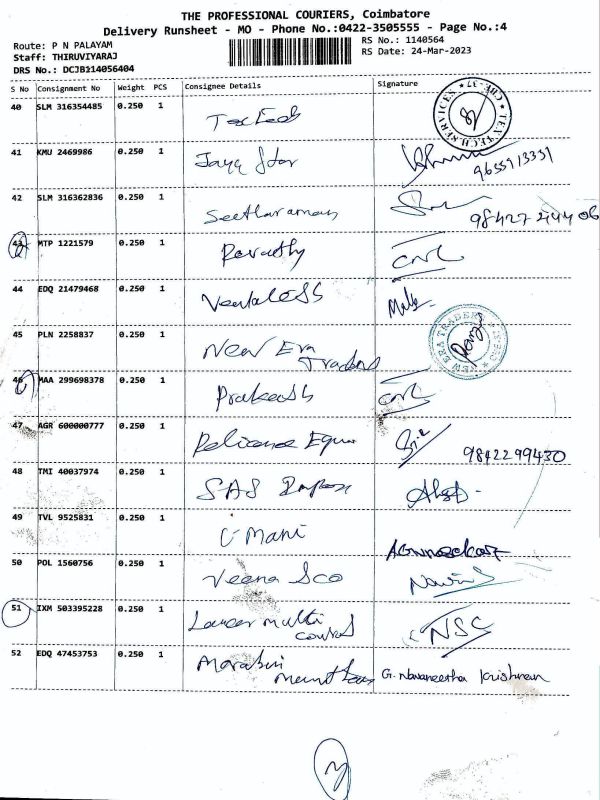 THE PROFESSIONAL COURIERS, Coimbatore
Delivery Runsheet - MO - Phone No.:0422-3505555 - Page No.:4
Route: P N PALAYAM
RS No.: 1140564
Staff: THIRUVIYARAJ
RS Date: 24-Mar-2023
DRS No.: DCJB114056404
S No Consignment No Weight PCS Consignee Details Signature
40 SLM 316354485 0.250 1
TEX TECH SERVICES
41 KMU 2469986 0.250 1 Jaya Star
9655913331
42 SLM 316362836 0.250 1 Seetharaman
43 MTP 1221579 0.250 1 Revathy CNL
44 EDQ 21479468 0.250 1 Male
45 PLN 2258837 0.250 1 New Era Traders
NEW ERA TRADERS
46 MAA 299698378 0.250 1 Prakash CNL
47 AGR 600000777 0.250 1 Reliance
9842299430
48 TMI 40037974 0.250 1 SAS
49 TVL 9525831 0.250 1 C-Mani
50 POL 1560756 0.250 1 Veena Sco
51 IXM 503395228 0.250 1 Lancer multi NSC
52 EDQ 47453753 0.250 1 G. Navaneetha Krishnan